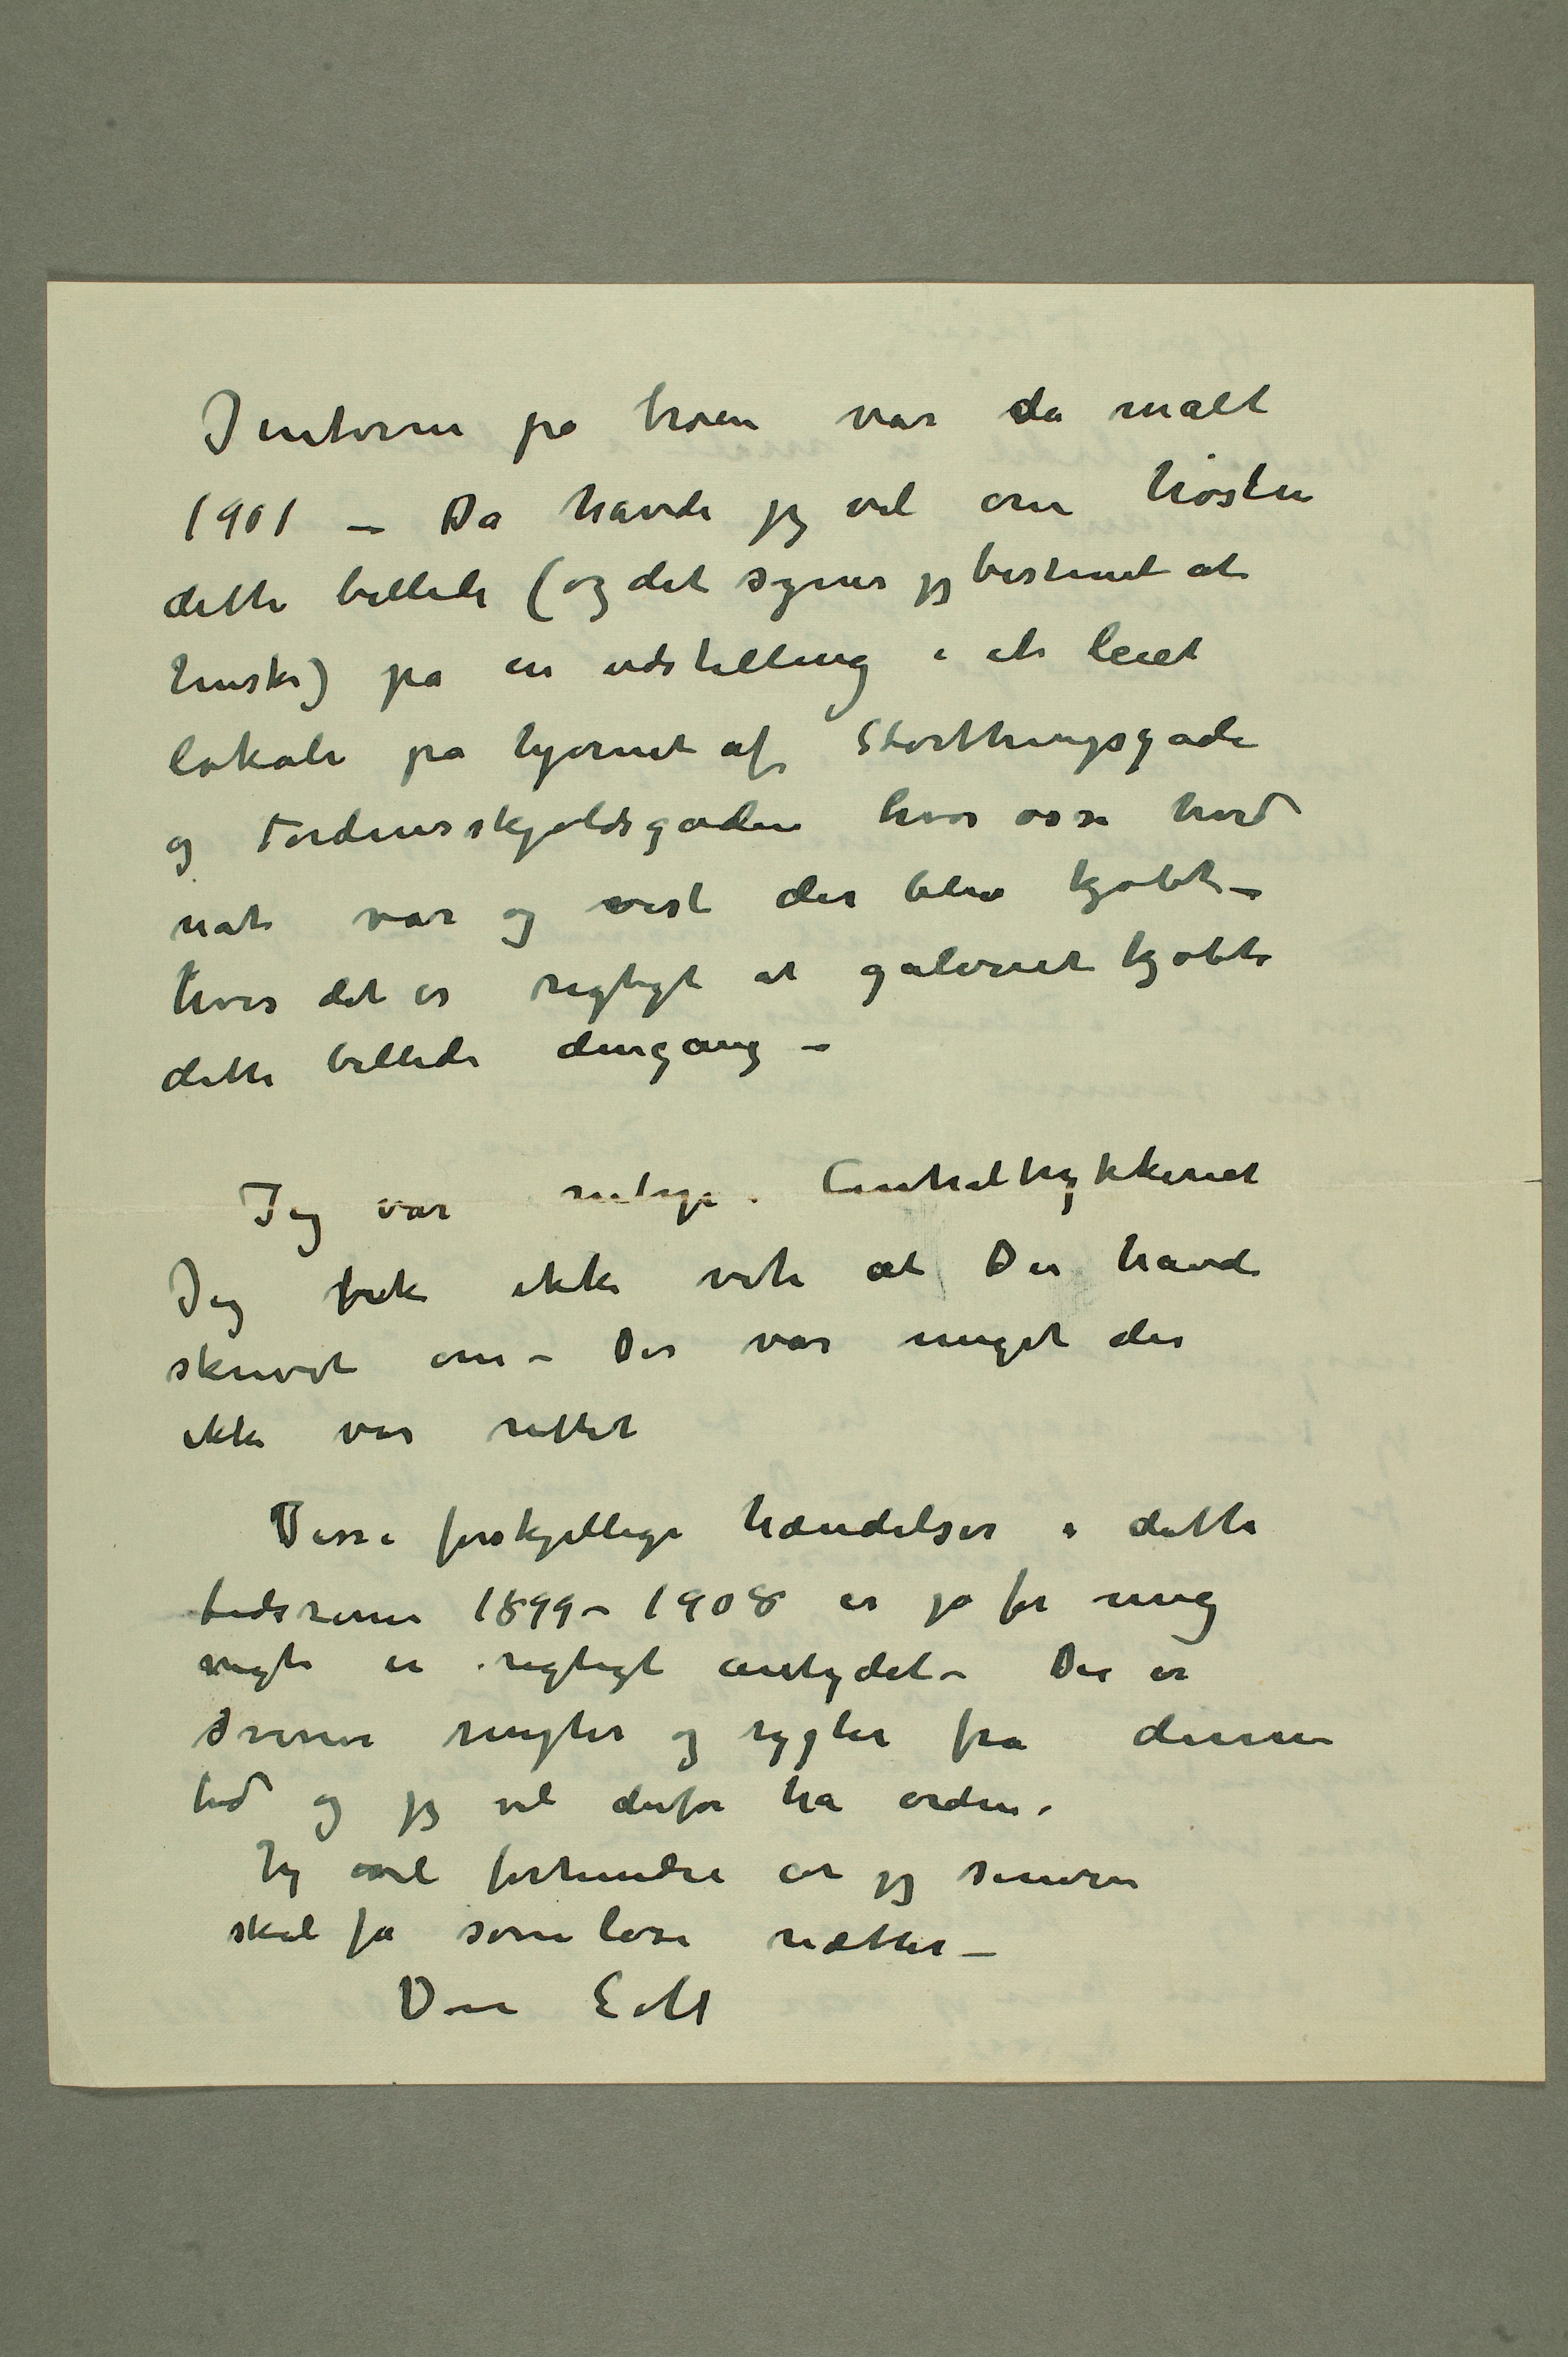 Jenterne på broen var da malt
1901 – Da havde jeg vel om høsten
dette billede (og det synes jeg bestemt at
huske) på en udstilling i et leiet
lokale på hjørnet af Storthingsgade
og Tordenskjoldsgaden hvor osse hvid
nat var og vist der blev kjøbt –
hvis det er rigtigt at galeriet kjøbte
dette billede dengang –
Jeg var i Centraltrykkeriet
Jeg fik ikke vite at De havde
skrevet om – Der var meget der
ikke var rettet
Disse forskjellige hændelser i dette
tidsrum 1899 – 1908 er jo for mig
vigtig er rigtigt antydet – Der er
svære rygter og rygter fra denne
tid og jeg vil derfor ha orden.
Jeg vil forhindre at jeg senere
skal få søvnløse nætter –
Den EM